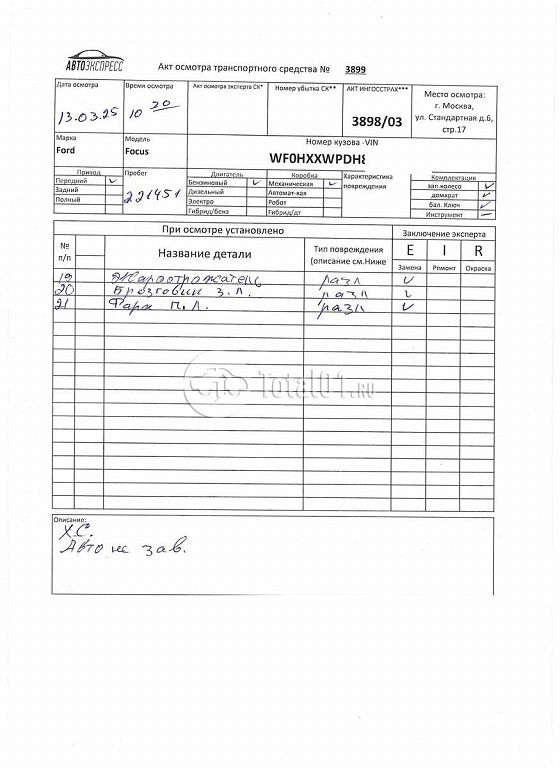 АВТОЭКСПРЕСС
Акт осмотра транспортного средства № 3899
Дата осмотра Время осмотра Акт осмотра эксперта СК* Номер убытка СК** АКТ ИНГОССТРАХ*** Место осмотра:
г. Москва,
ул. Стандартная д.6,
стр.17
13.03.25 10 20 3898/03
Марка Модель Номер кузова -VIN
Ford Focus WF0HXXWPDH8
Привод Пробег Двигатель Коробка Характеристика повреждения Комплектация
Передний Бензиновый Механическая зап.колесо
Задний 221451 Дизельный Автомат-кая домкрат
Полный Электро Робот бал. Ключ
Гибрид/бенз Гибрид/дт Инструмент
При осмотре установлено Заключение эксперта
№ п/п Название детали Тип повреждения (описание см.Ниже E I R
Замена Ремонт Окраска
19 разл
20 Брызговик з.л. разл
21 Фара п.л. разл
Total01.RU
Описание:
Х.С.
Авто не зав.